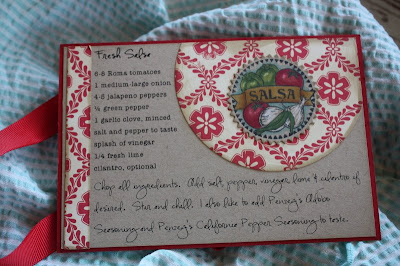 Fresh Salsa
6-8 Roma tomatoes
1 medium-large onion
4-6 jalapeno peppers
green pepper
1 garlic clove, minced
salt and pepper to taste
splash of vinegar
1/4 fresh lime
cilantro, optional
SALSA
Chop all ingredients. Add salt, pepper, vinegar, lime & cilantro if
desired. Stir and chill. I also like to add Penzey's Adobo
Seasoning and Penzey's California Pepper Seasoning to taste.